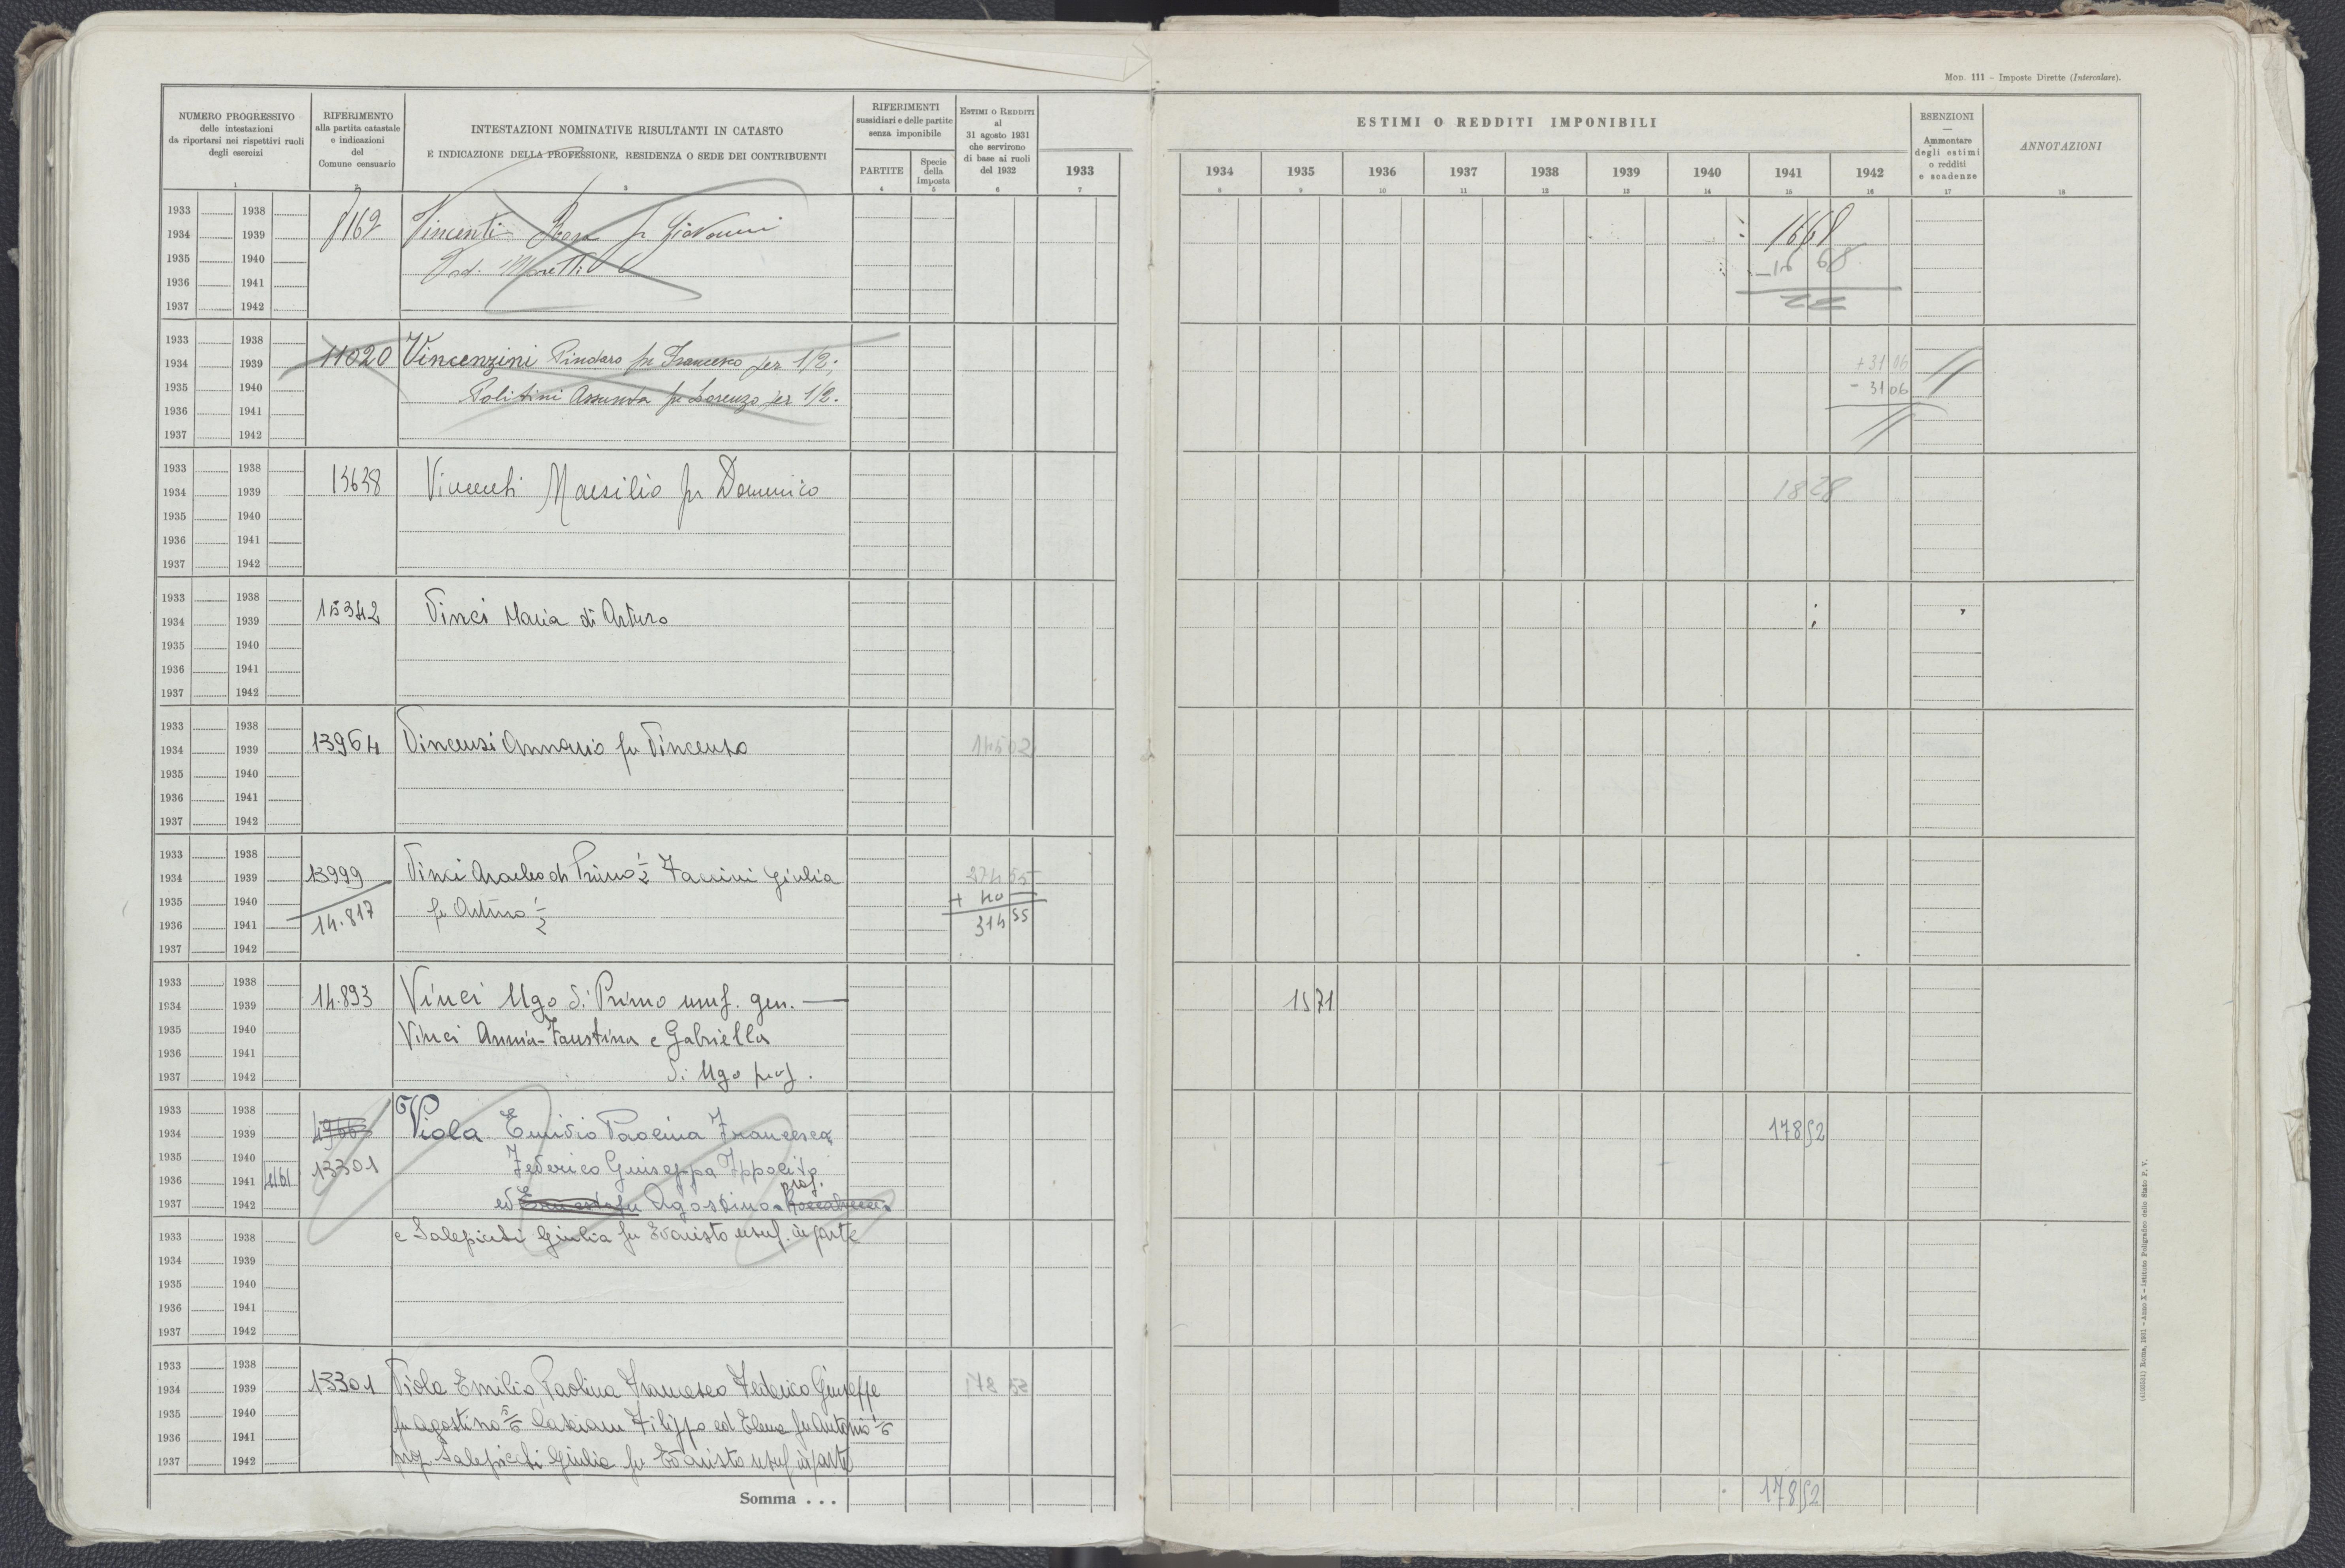 Mod. 111 – Imposte Dirette (Intercalare).
NUMERO PROGRESSIVO
delle intestazioni
da riportarsi nei rispettivi ruoli
degli esercizi
1
RIFERIMENTO
alla partita catastale
e indicazioni
del
Comune censuario
2
INTESTAZIONI NOMINATIVE RISULTANTI IN CATASTO
E INDICAZIONE DELLA PROFESSIONE, RESIDENZA O SEDE DEI CONTRIBUENTI
3
RIFERIMENTI
sussidiari e delle partite
senza imponibile
PARTITE
4
Specie
della
imposta
5
Estimi o Redditi
al
31 agosto 1931
che servirono
di base ai ruoli
del 1932
6
1933
7
ESTIMI O REDDITI IMPONIBILI
1934 1935 1936 1937 1938 1939 1940 1941 1942
8 9 10 11 12 13 14 15 16
ESENZIONI
—
Ammontare
degli estimi
o redditi
e scadenze
17
ANNOTAZIONI
18
1933 1938
1934 1939 8162 Vincenti Rosa fu Giovanni 1668
1935 1940 Ved. Moretti – 16 68
1936 1941
1937 1942
1933 1938
1934 1939 11020 Vincenzini Pindaro fu Francesco per 1/2; + 31 06
1935 1940 Politini Assunta fu Lorenzo per 1/2. – 31 06
1936 1941
1937 1942
1933 1938
1934 1939 13638 Vincenti Marsilio fu Domenico 18 28
1935 1940
1936 1941
1937 1942
1933 1938
1934 1939 15342 Vinci Maria di Arturo
1935 1940
1936 1941
1937 1942
1933 1938
1934 1939 13964 Vincenzi Annario fu Vincenzo
1935 1940
1936 1941
1937 1942
1933 1938
1934 1939 13999 Vinci di Primo 1/2 Faccini Giulia 274 55
1935 1940 fu Arturo 1/2 + 40
1936 1941 14.817 314 55
1937 1942
1933 1938
1934 1939 14.893 Vinci Ugo di Primo usuf. gen. — 15 71
1935 1940 Vinci Annia-Faustina e Gabriella
1936 1941
1937 1942 di Ugo prop.
1933 1938
1934 1939 Viola Emidio Paolina Francesca 178 52
1935 1940 13301 Federico Giuseppa Ippolito
1936 1941 prop.
1937 1942 ed Agostino
1933 1938 e Salepicchi Giulia fu Evaristo usuf. in parte
1934 1939
1935 1940
1936 1941
1937 1942
1933 1938
1934 1939 13301 Viola Emilio Paolina Francesco Federico Giuseppe 178 52
1935 1940 fu Agostino 5/6 Filippo ed Elena fu Antonio 1/6
1936 1941
1937 1942 prop Salepicchi Giulia fu Evaristo usuf in parte
Somma . . . 178 52
(4103531) Roma, 1931 – Anno X – Istituto Poligrafico dello Stato P. V.